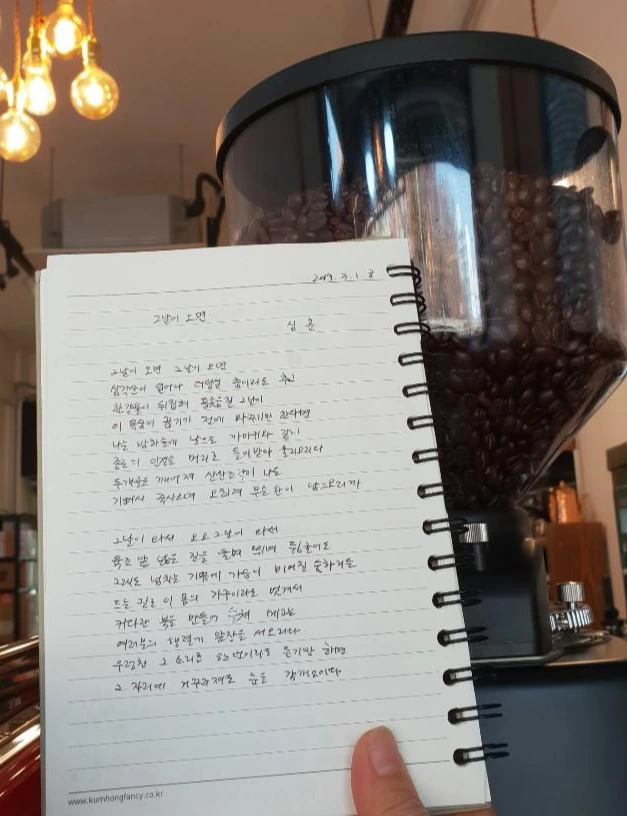 2019. 3. 1. 금
그날이 오면
심 훈
그날이 오면 그날이 오면
삼각산이 일어나 더덩실 춤이라도 추고
한강물이 뒤집혀 용솟음칠 그날이
이 목숨이 끊기기 전에 와주기만 한다면
나는 밤하늘에 날으는 까마귀와 같이
종로의 인경을 머리로 들이받아 울리오리다
두개골은 깨어져 산산조각이 나도
기뻐서 죽사오매 오히려 무슨 한이 남으오리까
그날이 와서 오오 그날이 와서
육조 앞 넓은 길을 울며 뛰며 뒹굴어도
그래도 넘치는 기쁨에 가슴이 미어질 듯하거든
드는 칼로 이 몸의 가죽이라도 벗겨서
커다란 북을 만들어 메고는
여러분의 행렬에 앞장을 서오리다
우렁찬 그 소리를 한 번이라도 듣기만 하면
그 자리에 거꾸러져도 눈을 감겠소이다
www.kumhongfancy.co.kr